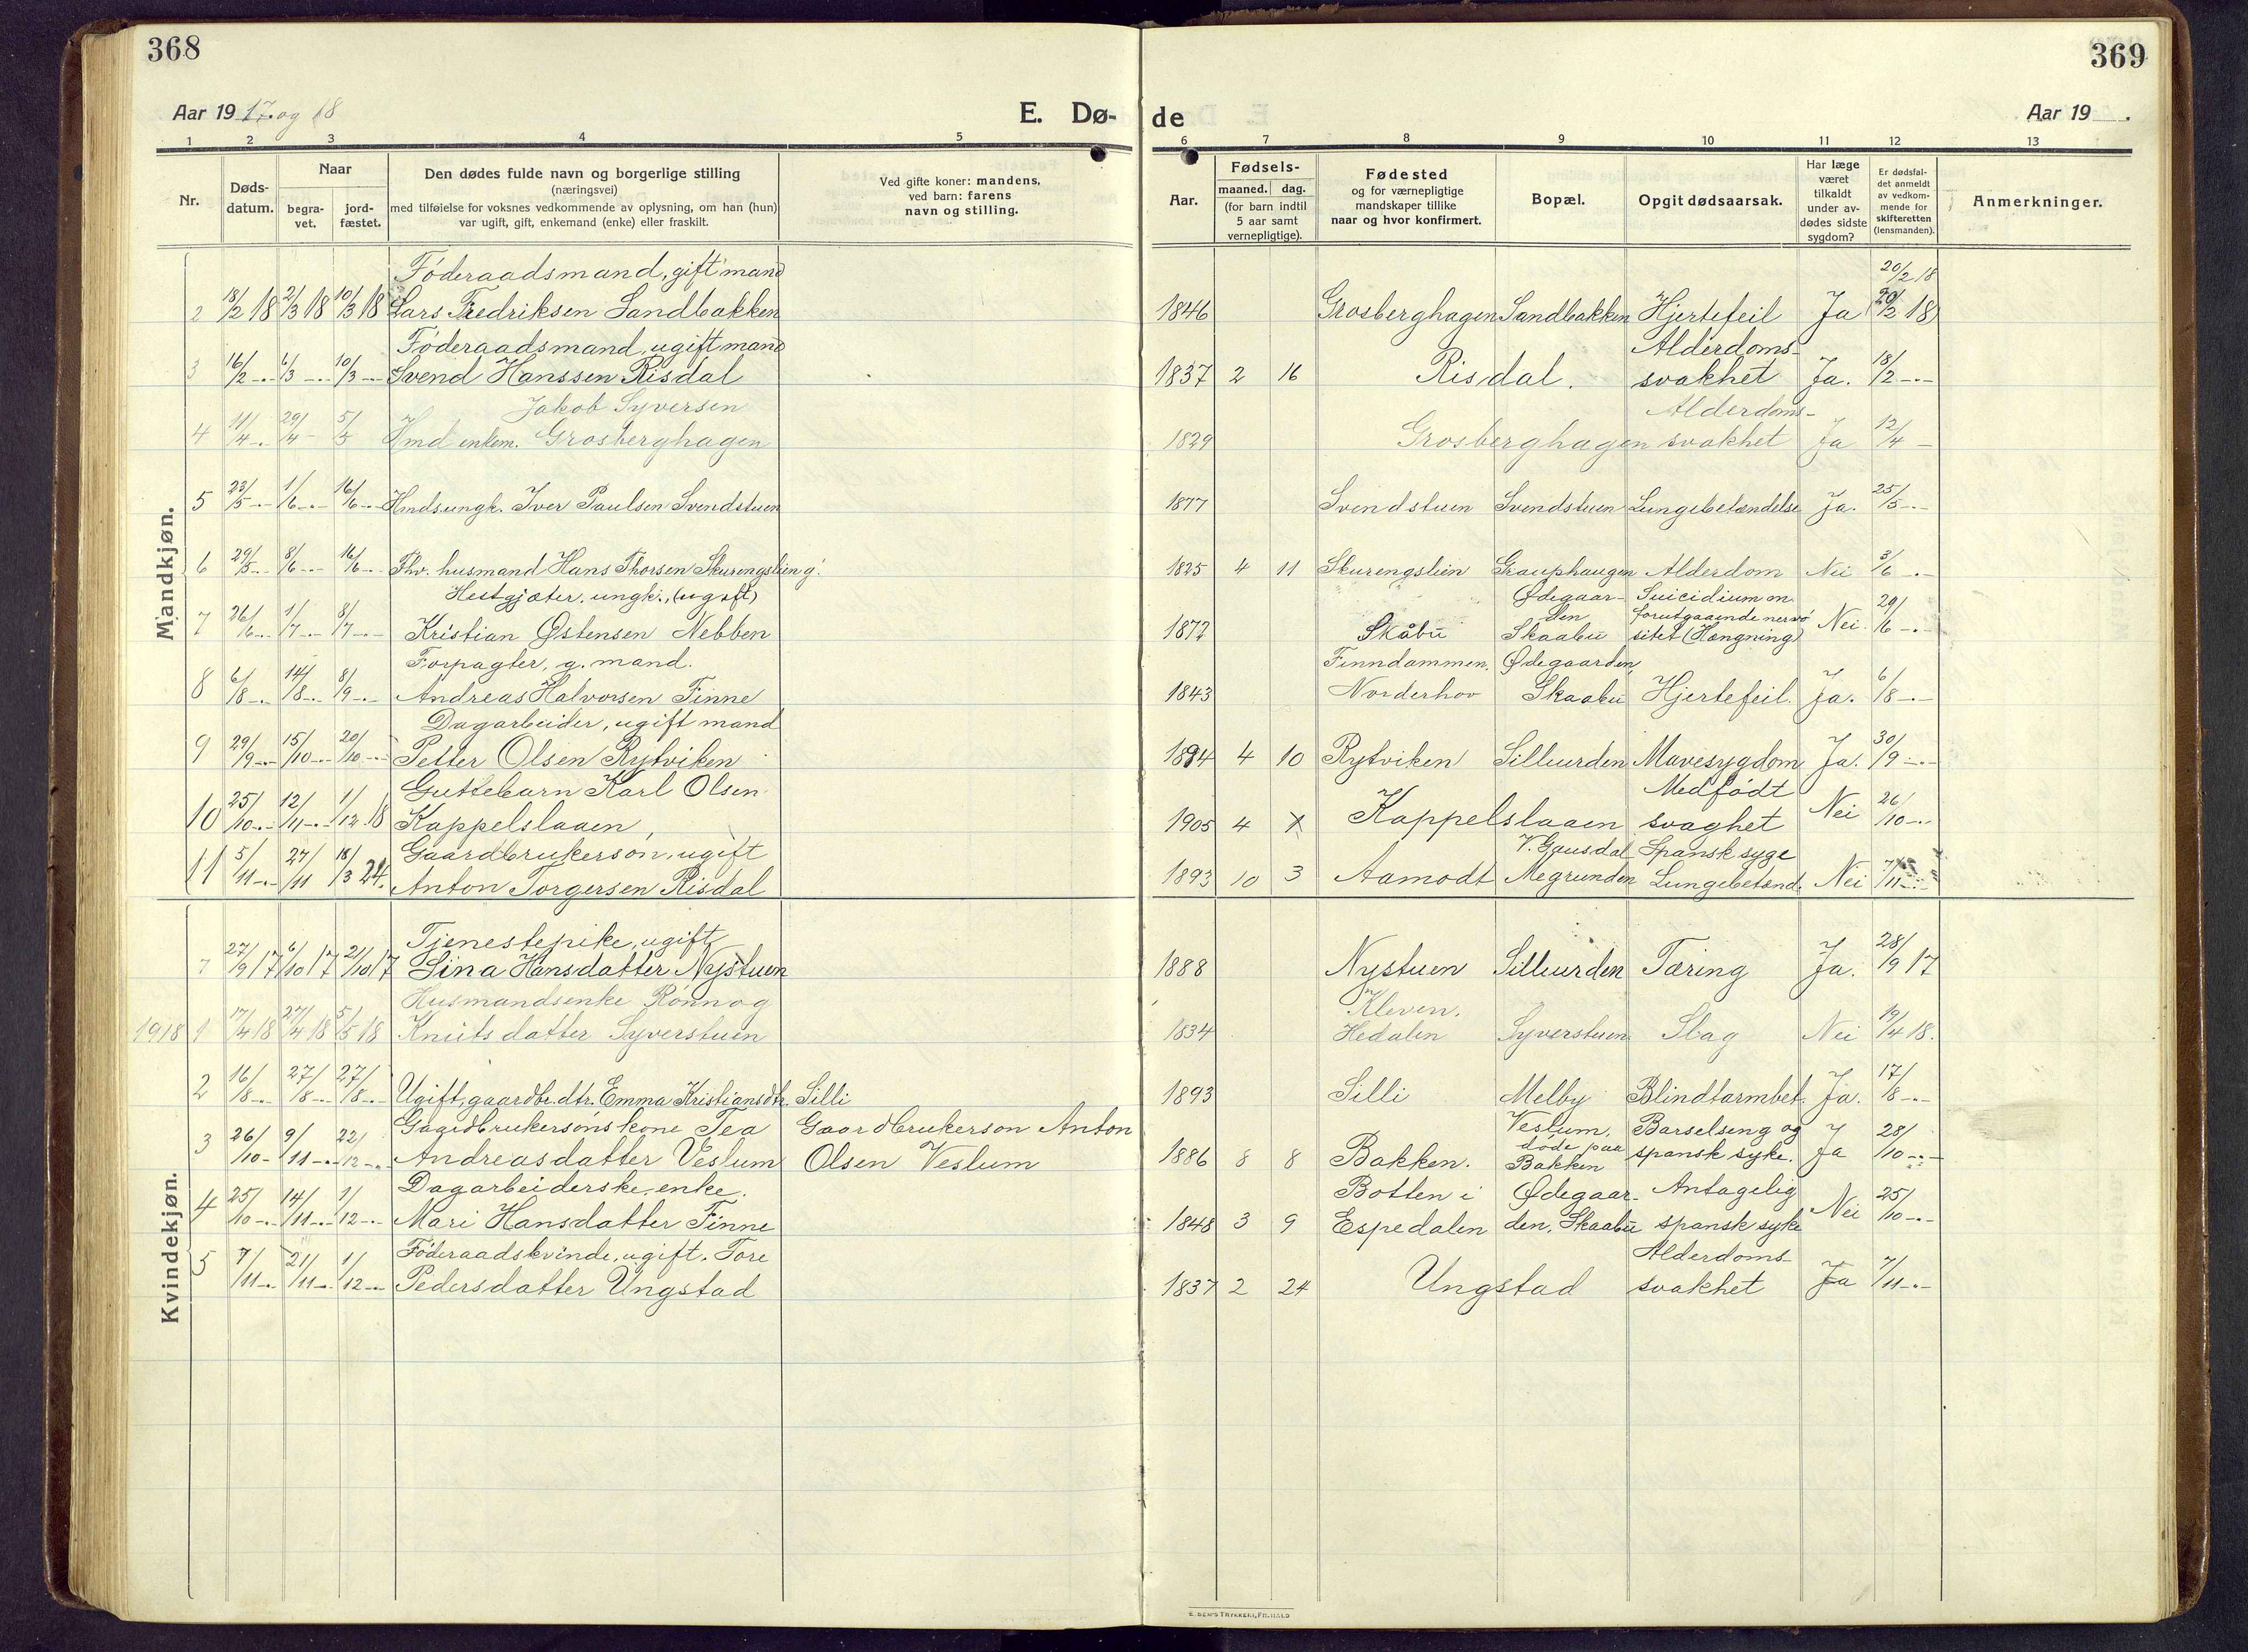 368
Aar 19 17 og 18
E. Dø-
1 2 3 4 5
Nr.
Døds-
datum.
Naar
begra-
vet.
jord-
fæstet.
Den dødes fulde navn og borgerlige stilling
(næringsvei)
med tilføielse for voksnes vedkommende av oplysning, om han (hun)
var ugift, gift, enkemand (enke) eller fraskilt.
Ved gifte koner: mandens,
ved barn: farens
navn og stilling.
Mandkjøn.
Føderaadsmand, gift mand
2 18/2 18 2/3 18 10/3 18 Lars Fredriksen Sandbakken
Føderaadsmand, ugift mand
3 16/2 -.- 6/3 -.- 10/3 -.- Svend Hanssen Risdal
Jakob Syversen
4 11/4 -.- 29/4 - 5/5 Hmd enkem. Grosberghagen
5 23/5 -.- 1/6 -.- 16/6 -.- Hmdsungk. Iver Paulsen Svendstuen
6 29/5 -.- 8/6 -.- 16/6 -.- Fhv. husmand Hans Thorsen Skurengslien g.
Hestgjæter, ungk., (ugift)
7 26/6 -.- 1/7 -.- 8/7 -.- Kristian Østensen Nebben
Forpagter, g. mand.
8 6/8 -.- 14/8 -.- 8/9 -.- Andreas Halvorsen Finne
Dagarbeider, ugift mand
9 29/9 -.- 15/10 -.- 20/10 -.- Petter Olsen Rytviken
Guttebarn Karl Olsen
10 25/10 -.- 12/11 -.- 1/12 18 Kappelslaaen,
Gaardbrukerson, ugift
11 5/11 -.- 27/11 18/3 24. Anton Torgersen Risdal
Kvindekjøn.
Tjenestepike, ugift,
7 27/9 17 6/10 17 21/10 17 Lina Hansdatter Nystuen
Husmandsenke Rønnog
1918 1 17/4 18 27/4 18 5/5 18 Knutsdatter Syverstuen
2 16/8 -.- 27/8 -.- 27/8 -.- Ugift, gaardbr.dtr. Emma Kristiansdtr. Silli
Gaardbrukersønskone Tea Gaardbrukerson Anton
3 26/10 - 9/11 -.- 22/12 -.- Andreasdatter Veslum Olsen Veslum
Dagarbeiderske, enke.
4 25/10 -.- 14/11 -.- 1/12 -.- Mari Hansdatter Finne
Føderaadskvinde, ugift. Tore
5 7/11 -.- 21/11 -.- 1/12 -.- Pedersdatter Ungstad
369
de
Aar 19 .
6 7 8 9 10 11 12 13
Aar.
Fødsels-
maaned. dag.
(for barn indtil
5 aar samt
vernepligtige).
Fødested
og for værnepligtige
mandskaper tillike
naar og hvor konfirmert.
Bopæl.
Opgit dødsaarsak.
Har læge
været
tilkaldt
under av-
dødes sidste
sygdom?
Er dødsfal-
det anmeldt
av vedkom-
mende for
skifteretten
(lensmanden).
Anmerkninger.
20/2 18
1846 Grosberghagen Sandbakken Hjertefeil Ja 20/2 18
Alderdoms-
1837 2 16 Risdal. svakhet Ja. 18/2 -.-
Alderdoms-
1829 Grosberghagen svakhet Ja 12/4 -
1877 Svendstuen Svendstuen Lungebetændelse Ja. 25/5 -.-
1825 4 11 Skurengslien Grauphaugen Alderdom Nei 3/6 -.-
Ødegaar- Suicidium m.
den forutgaaende nervø
1872 Skåbu Skaabu sitet (Hængning) Nei. 29/6 -.-
Finndammen, Ødegaarden,
1843 Norderhov Skaabu Hjertefeil. Ja. 6/8 -.-
1894 4 10 Rytviken Silliurden Mavesygdom Ja. 30/9 -.-
Medfødt
1905 4 Kappelslaaen svaghet Nei 26/10 -.-
V. Gausdal Spansk syge
1893 10 3 Aamodt Megrunden Lungebetænd. Nei 7/11 -.-
1888 Nystuen Silliurden Tæring Ja. 28/9 17
Kleven,
1834 Hedalen Syverstuen Slag Nei 19/4 18.
1893 Silli Melby Blindtarmbet. Ja. 17/8 -.-
Veslum, Barselseng og
døde paa
1886 8 8 Bakken. Bakken spansk syke. Ja 28/10 -.-
Botten i Ødegaar- Antagelig
1848 3 9 Espedalen den, Skaabu spansk syke Nei 25/10 -.-
Alderdoms-
1837 2 24 Ungstad svakhet Ja 7/11 -.-